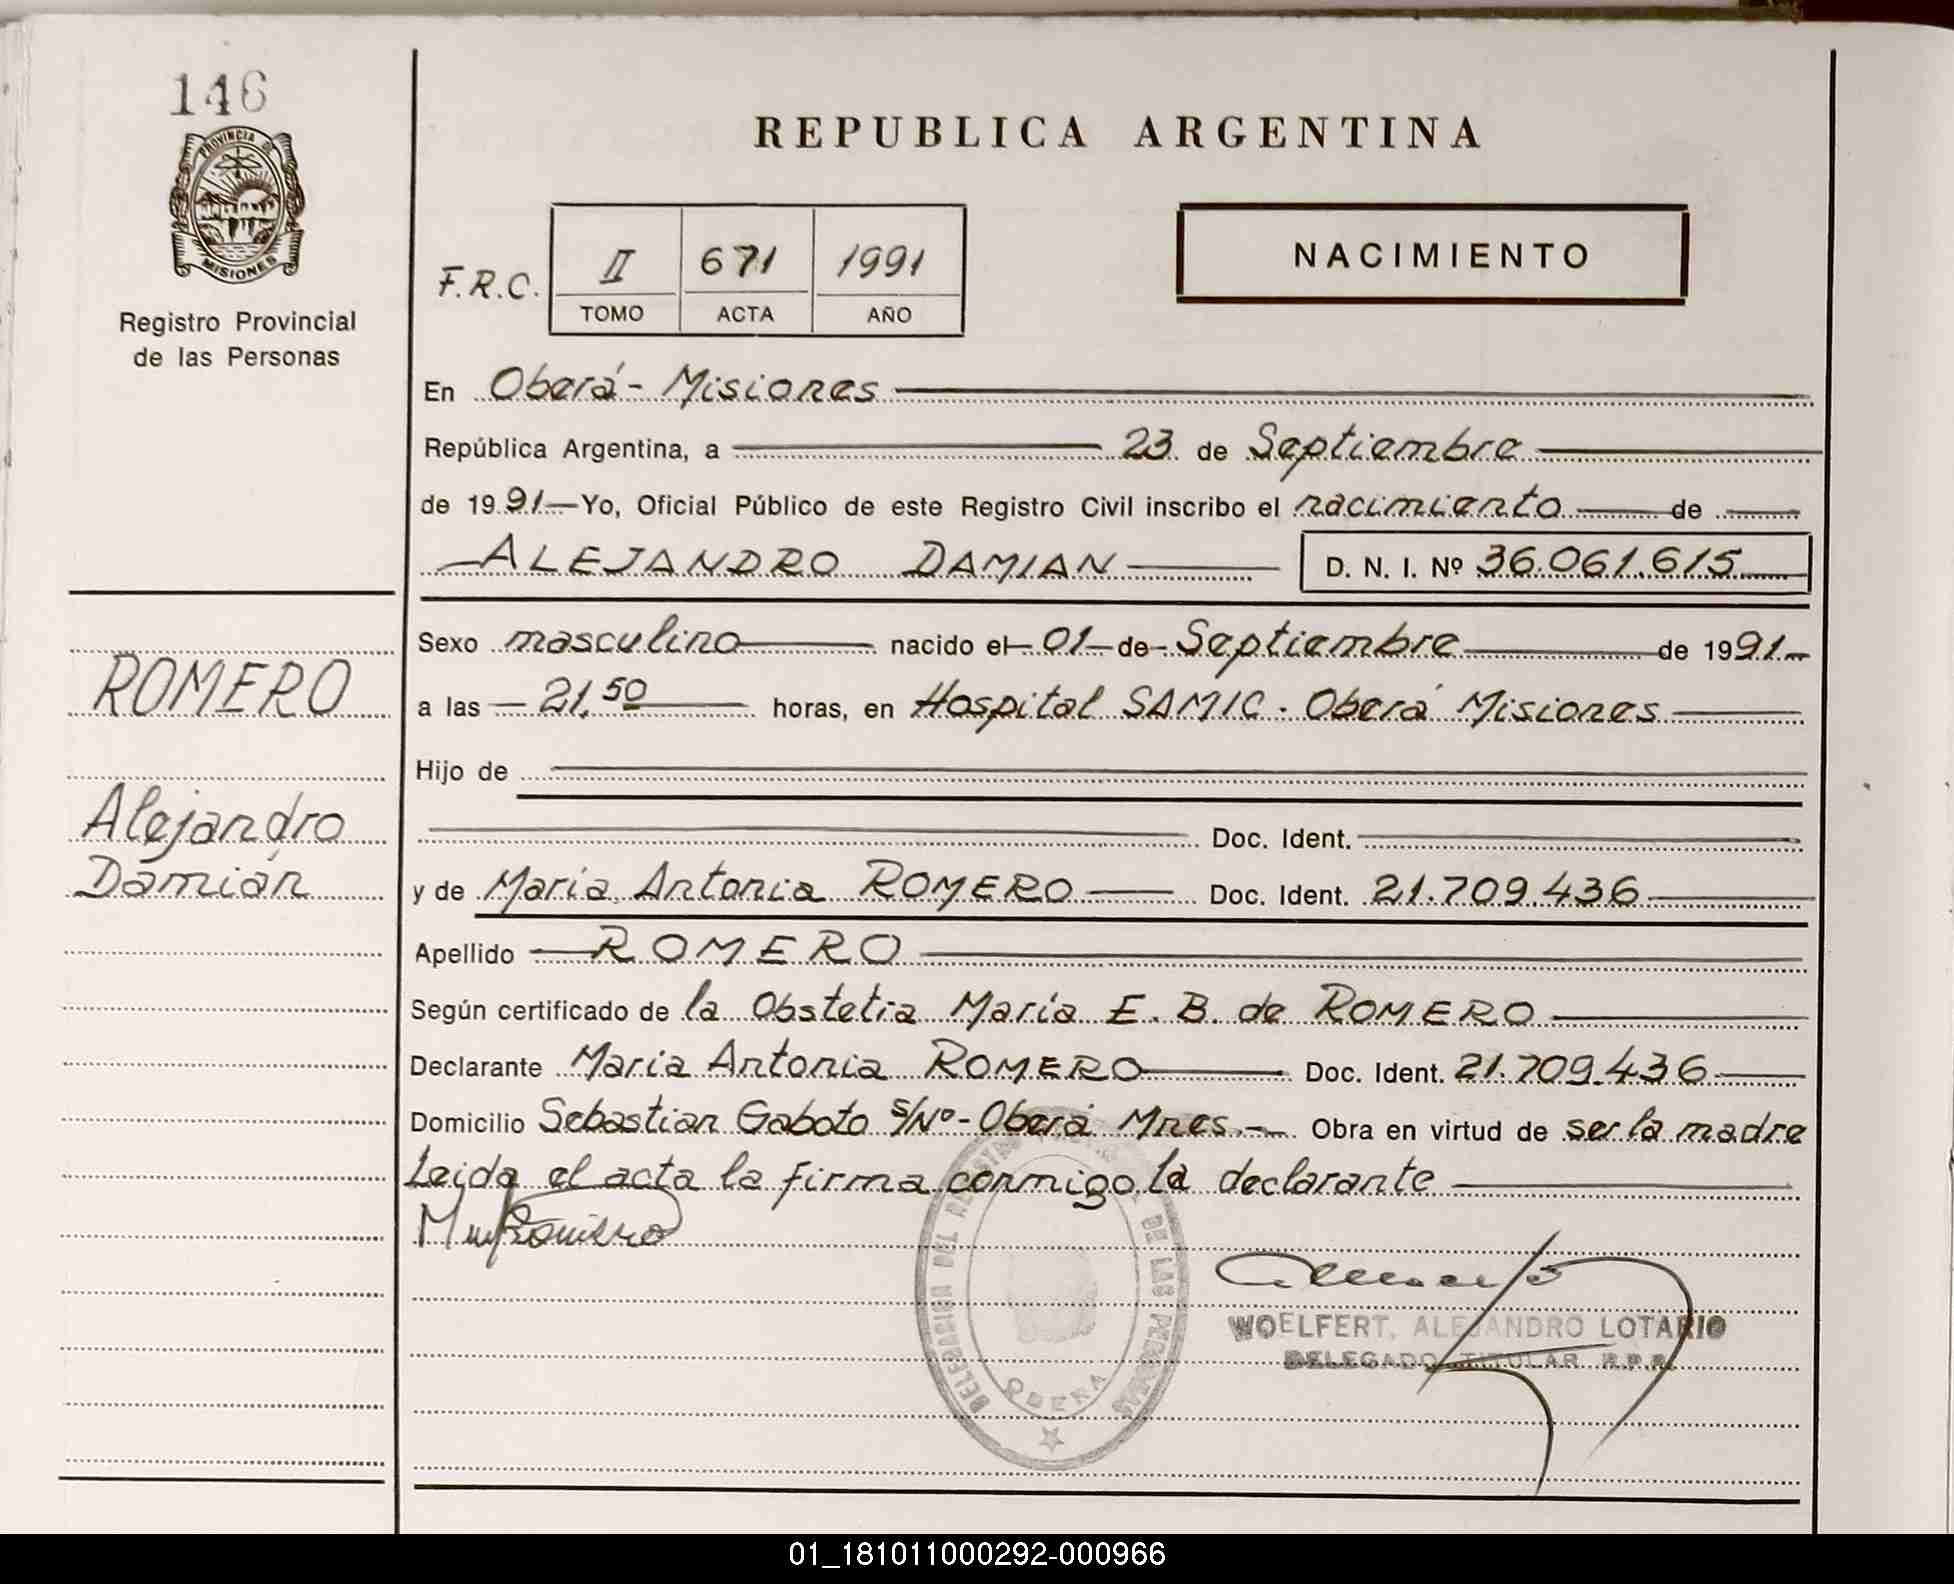 146
PROVINCIA DE
MISIONES
Registro Provincial
de las Personas
REPUBLICA ARGENTINA
F.R.C.
II 671 1991
TOMO ACTA AÑO
NACIMIENTO
En Oberá - Misiones
República Argentina, a 23 de Septiembre
de 1991 Yo, Oficial Público de este Registro Civil inscribo el nacimiento de
ALEJANDRO DAMIAN D. N. I. Nº 36.061.615
Sexo masculino nacido el 01 de Septiembre de 1991
a las 21,50 horas, en Hospital SAMIC. Oberá Misiones
Hijo de
Doc. Ident.
y de María Antonia ROMERO Doc. Ident. 21.709.436
Apellido ROMERO
Según certificado de la Obstetia María E. B. de ROMERO
Declarante María Antonia ROMERO Doc. Ident. 21.709.436
Domicilio Sebastian Gaboto S/Nº - Oberá Mnes. Obra en virtud de ser la madre
Leida el acta la firma conmigo la declarante
ROMERO
Alejandro
Damián
DELEGACION DEL REGISTRO DE LAS PERSONAS
OBERA
WOELFERT, ALEJANDRO LOTARIO
DELEGADO TITULAR R.P.P.
01_181011000292-000966